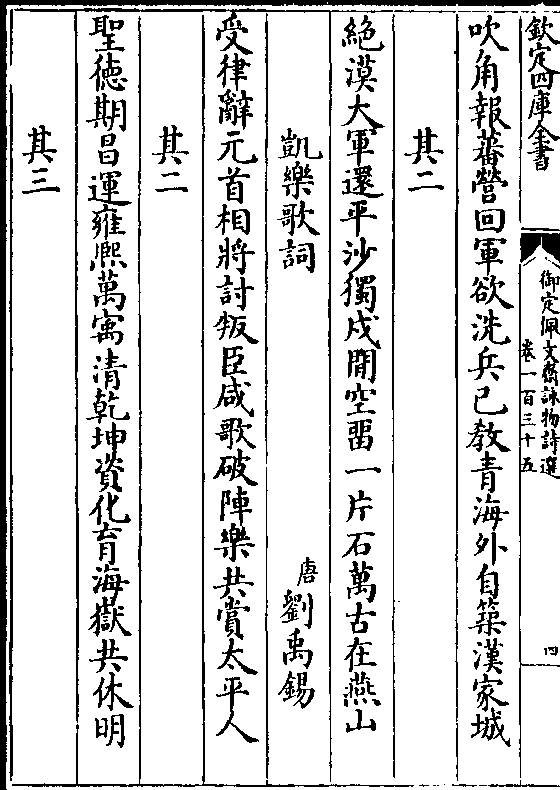 欽定四庫全書
御定佩文齋詠物詩選
卷一百三十五
四
吹角報蕃營回軍欲洗兵已教青海外自築漢家城
其二
絕漠大軍還平沙獨戍閒空畱一片石萬古在燕山
凱樂歌詞 唐劉禹錫
受律辭元首相將討叛臣咸歌破陣樂共賞太平人
其二
聖德期昌運雍熙萬㝢清乾坤資化育海嶽共休明
其三